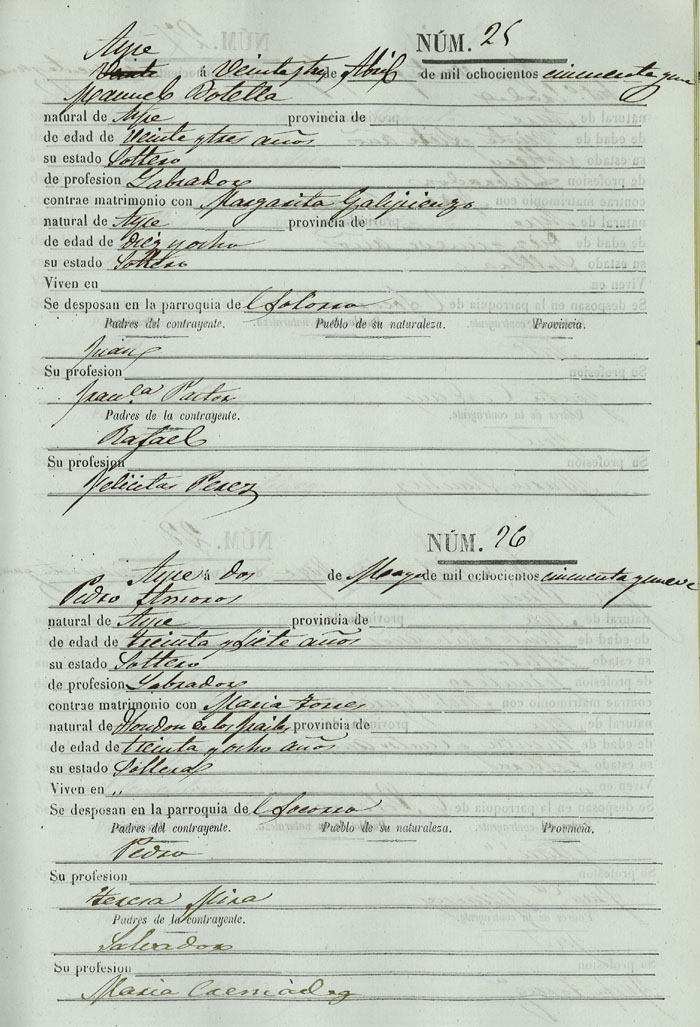 NÚM. 25
Aspe
Veinte á Veinte y tres de Abril de mil ochocientos cincuenta y nueve
Manuel Botella
natural de Aspe provincia de
de edad de Veinte y tres años
su estado Soltero
de profesion Labrador
contrae matrimonio con Margarita
natural de Aspe provincia de
de edad de Diez y ocho
su estado Soltera
Viven en
Se desposan en la parroquia de el Socorro
Padres del contrayente. Pueblo de su naturaleza. Provincia.
Juan
Su profesion
Fran.ca Pastor
Padres de la contrayente.
Rafael
Su profesion
Felicitas Perez
NÚM. 26
Aspe á dos de Mayo de mil ochocientos cincuenta y nueve
Pedro Amoros
natural de Aspe provincia de
de edad de treinta y siete años
su estado Soltero
de profesion Labrador
contrae matrimonio con Maria Torres
natural de Hondon de los Frailes provincia de
de edad de treinta y ocho años
su estado Soltera
Viven en "
Se desposan en la parroquia de el Socorro
Padres del contrayente. Pueblo de su naturaleza. Provincia.
Pedro
Su profesion
Teresa Mira
Padres de la contrayente.
Salvador
Su profesion
Maria